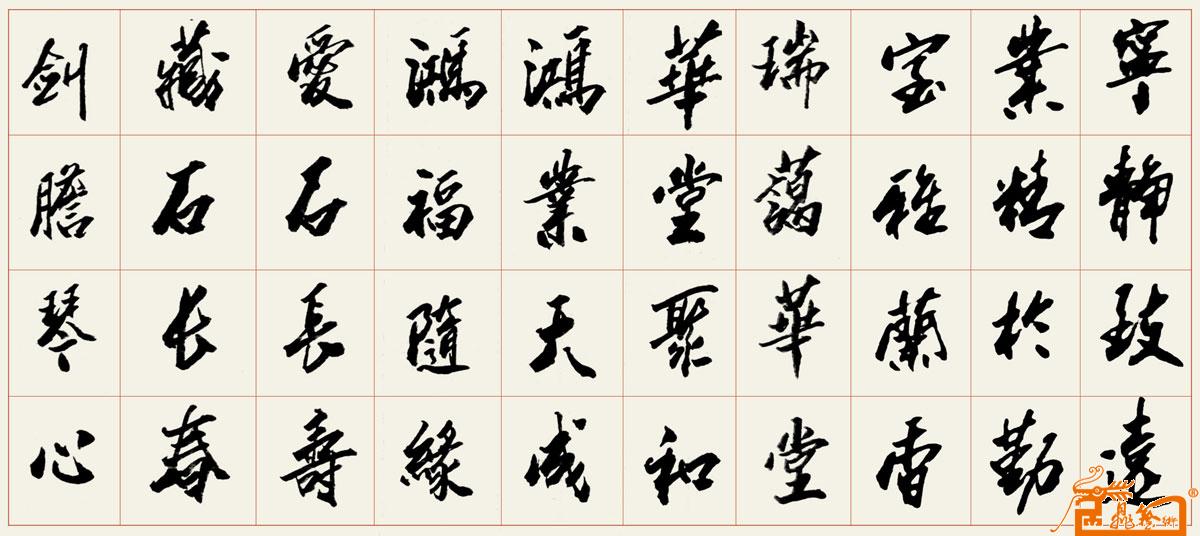 寧靜致遠
業精於勤
室雅蘭香
瑞藹華堂
華堂聚和
鴻業天成
鴻福隨緣
愛石長壽
藏石长春
剑膽琴心